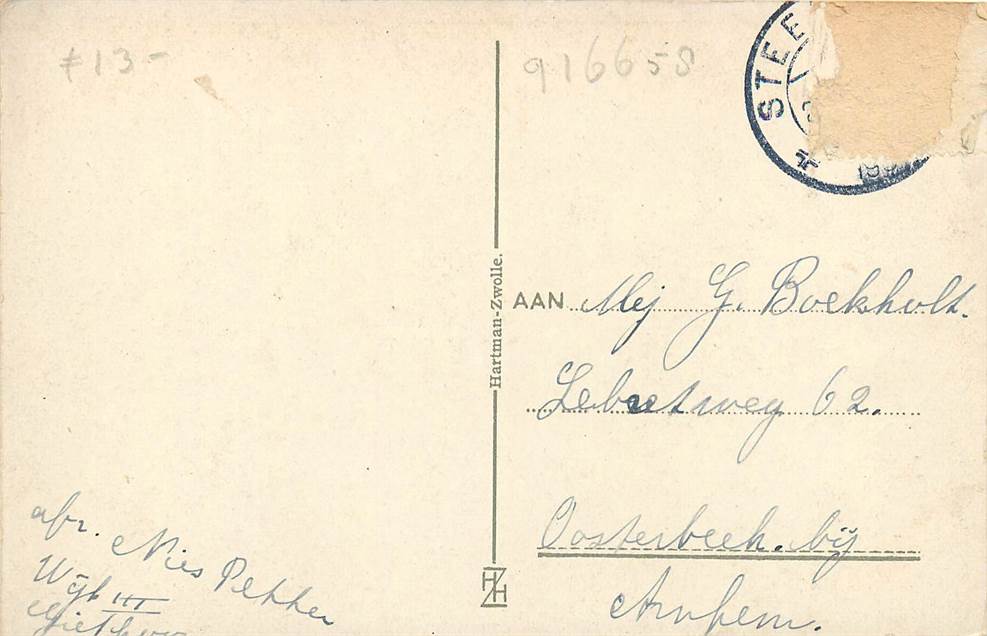 F 13-
916658
STEE
19
Hartman-Zwolle.
AAN Mej G. Boekholt.
Lebretweg 62.
Oosterbeek. bij
Arnhem.
HZH
afz. Mies Petter
Wijk III
Giethoorn